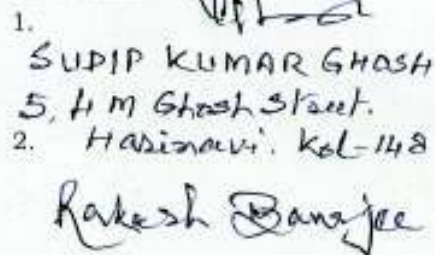 1.
SUDIP KUMAR GHOSH
5, H M Ghosh Street.
2. Harinavi. Kol-148
Rakesh Banerjee